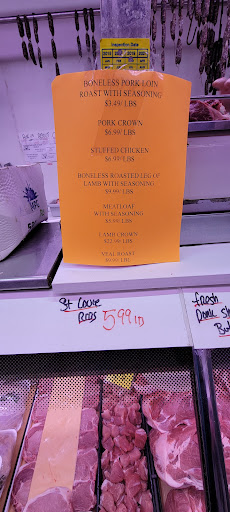 Inspection Date
BONELESS PORK LOIN
ROAST WITH SEASONING
$3.49/ LBS
PORK CROWN
$6.99/ LBS
STUFFED CHICKEN
$6.99/ LBS
BONELESS ROASTED LEG OF
LAMB WITH SEASONING
$9.99/ LBS
MEATLOAF
WITH SEASONING
LBS
LAMB CROWN
LBS
VEAL ROAST
LBS
St Louie
Ribs 5.99 lb
fresh
Pork